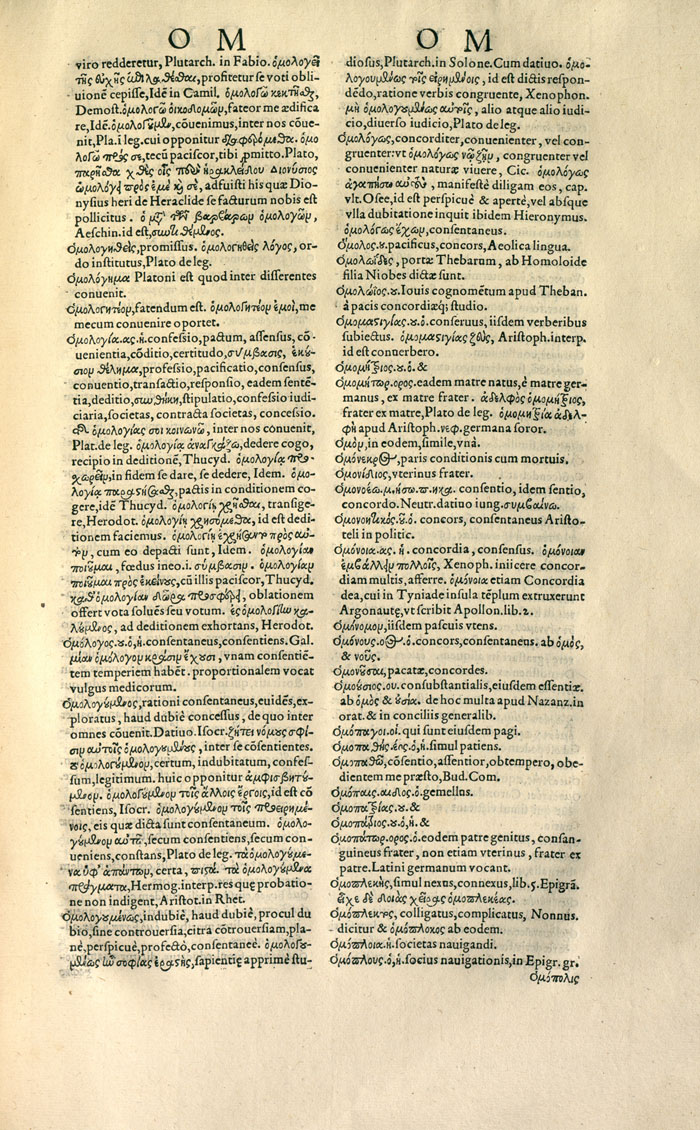 O M
viro redderetur, Plutarch. in Fabio. ὁμολογεῖ
τῆς εὐχῆς profitetur se voti obli-
uionē cepisse, Idē in Camil. ὁμολογῶ κεκτῆσθαι,
Demost. ὁμολογῶ οἰκοδομῶν, fateor me ædifica
re, Idē. ὁμολογοῦμεν, cōuenimus, inter nos cōue-
nit, Pla. i leg. cui opponitur διαφερόμεθα. ὁμο
λογῶ πρός σε, tecū paciscor, tibi ꝓmitto. Plato,
παρῆσθα χθὲς οἷς Ἡρακλείδου Διονύσιος
ὡμολόγει πρὸς ἐμὲ καὶ σὲ, adfuisti his quæ Dio-
nysius heri de Heraclide se facturum nobis est
pollicitus. ὁ μετὰ τῶν βαρβάρων ὁμολογῶν,
Aeschin. id est, συνθέμενος.
ὁμολογηθεὶς, promissus. ὁμολογηθεὶς λόγος, or-
do institutus, Plato de leg.
ὁμολόγημα Platoni est quod inter differentes
conuenit.
ὁμολογητέον, fatendum est. ὁμολογητέον ἐμοὶ, me
mecum conuenire oportet.
ὁμολογία. ας. ἡ. confessio, pactum, assensus, cō-
uenientia, cōditio, certitudo, σύμβασις, ἑκού-
σιον θέλημα, professio, pacificatio, consensus,
conuentio, transactio, responsio, eadem sentē-
tia, deditio, συνθήκη, stipulatio, confessio iudi-
ciaria, societas, contracta societas, concessio.
ὁμολογίας σοι κοινωνῶ, inter nos conuenit,
Plat. de leg. ὁμολογία ἀναγκάζω, dedere cogo,
recipio in deditionē, Thucyd. ὁμολογία προσ-
χωρεῖν, in fidem se dare, se dedere, Idem. ὁμο-
λογία παραστήσασθαι, pactis in conditionem co-
gere, idē Thucyd. ὁμολογίῃ χρῆσθαι, transige-
re, Herodot. ὁμολογίῃ χρησόμεθα, id est dedi
tionem faciemus. ὁμολογίῃ ἐχρήσαντο πρὸς αὐ-
τὸν, cum eo depacti sunt, Idem. ὁμολογίαν
ποιοῦμαι, fœdus ineo. i. σύμβασιν. ὁμολογίαν
ποιοῦμαι πρὸς ἐκείνους, cū illis paciscor, Thucyd.
καθ' ὁμολογίαν δῶρα προσφορὰ, oblationem
offert vota soluēs seu votum. ἐς ὁμολογίην κα-
λούμενος, ad deditionem exhortans, Herodot.
ὁμόλογος. ου. ὁ, ἡ. consentaneus, consentiens. Gal.
μίαν ὁμόλογον κρᾶσιν ἔχουσι, vnam consentiē-
tem temperiem habēt. proportionalem vocat
vulgus medicorum.
ὁμολογούμενος, rationi consentaneus, euidēs, ex-
ploratus, haud dubiè concessus, de quo inter
omnes cōuenit. Datiuo. Isocr. ζητεῖ νόμους σφί-
σιν αὐτοῖς ὁμολογουμένους, inter se cōsentientes.
ὁμολογούμενον, certum, indubitatum, confes-
sum, legitimum. huic opponitur ἀμφισβητού-
μενον. ὁμολογούμενον τοῖς ἄλλοις ἔργοις, id est cō
sentiens, Isocr. ὁμολογούμενον τοῖς προειρημέ-
νοις, eis quæ dicta sunt consentaneum. ὁμολο-
γούμενον αὐτῷ, secum consentiens, secum con-
ueniens, constans, Plato de leg. τὰ ὁμολογούμε-
να ὑφ' ἁπάντων, certa, πιστά. τὰ ὁμολογούμενα
πράγματα, Hermog. interp. res quę probatio-
ne non indigent, Aristot. in Rhet.
ὁμολογουμένως, indubiè, haud dubiè, procul du
bio, sine controuersia, citra cōtrouersiam, pla-
nè, perspicuè, profectò, consentaneè. ὁμολογου-
μένως σοφίας ἐραστὴς, sapientię apprimè stu-
O M
diosus, Plutarch. in Solone. Cum datiuo. ὁμο-
λογουμένως τοῖς εἰρημένοις, id est dictis respon-
dēdo, ratione verbis congruente, Xenophon.
μὴ ὁμολογουμένως αὑτοῖς, alio atque alio iudi-
cio, diuerso iudicio, Plato de leg.
ὁμολόγως, concorditer, conuenienter, vel con-
gruenter: vt ὁμολόγως ζῆν, congruenter vel
conuenienter naturæ viuere, Cic. ὁμολόγως
ἀγαπήσω αὐτοὺς, manifestè diligam eos, cap.
vlt. Osee, id est perspicuè & apertè, vel absque
vlla dubitatione inquit ibidem Hieronymus.
ὁμολόγως ἔχων, consentaneus.
ὁμολος. ου. pacificus, concors, Aeolica lingua.
ὁμολωΐδες, portæ Thebarum, ab Homoloide
filia Niobes dictæ sunt.
ὁμολώϊος. ου. Iouis cognomētum apud Theban.
à pacis concordięq; studio.
ὁμομαστιγίας. ου. ὁ. conseruus, iisdem verberibus
subiectus. ὁμομαστιγίας ζεὺς, Aristoph. interp.
id est conuerbero.
ὁμομήτριος. ου. ὁ. &
ὁμομήτωρ. ορος. eadem matre natus, è matre ger-
manus, ex matre frater. ἀδελφὸς ὁμομήτριος,
frater ex matre, Plato de leg. ὁμομητρία ἀδελ-
φὴ apud Aristoph. νεφ. germana soror.
ὁμὸν, in eodem, simile, vnà.
ὁμόνεκρος, paris conditionis cum mortuis.
ὁμονήδιος, vterinus frater.
ὁμονοέω. μ. ήσω. π. ηκα. consentio, idem sentio,
concordo. Neutr. datiuo iung. συμβαίνω.
ὁμονοητικός. οῦ. ὁ. concors, consentaneus Aristo-
teli in politic.
ὁμόνοια. ας. ἡ. concordia, consensus. ὁμόνοιαν
ἐμβάλλειν πολλοῖς, Xenoph. iniicere concor-
diam multis, afferre. ὁμόνοια etiam Concordia
dea, cui in Tyniade insula tēplum extruxerunt
Argonautę, vt scribit Apollon. lib. 2.
ὁμόνομον, iisdem pascuis vtens.
ὁμόνους. οος. ὁ. concors, consentaneus. ab ὁμὸς,
& νοῦς.
ὁμονοῦσαι, pacatæ, concordes.
ὁμοούσιος. ου. consubstantialis, eiusdem essentiæ.
ab ὁμὸς & οὐσία. de hoc multa apud Nazanz. in
orat. & in conciliis generalib.
ὁμόπαγοι. οἱ. qui sunt eiusdem pagi.
ὁμοπαθὴς. έος. ὁ, ἡ. simul patiens.
ὁμοπαθῶ, cōsentio, assentior, obtempero, obe-
dientem me præsto, Bud. Com.
ὁμόπαις. αιδος. ὁ. gemellus.
ὁμοπατρίας. ου. &
ὁμοπάτριος. ου. ὁ, ἡ. &
ὁμοπάτωρ. ορος. ὁ. eodem patre genitus, consan-
guineus frater, non etiam vterinus, frater ex
patre. Latini germanum vocant.
ὁμοπλεκὴς, simul nexus, connexus, lib. 5. Epigrā.
εἶχε δὲ δοιὰς χεῖρας ὁμοπλεκέας.
ὁμόπλεκτος, colligatus, complicatus, Nonnus.
dicitur & ὁμόπλοκος ab eodem.
ὁμόπλοια. ἡ. societas nauigandi.
ὁμόπλους. ὁ, ἡ. socius nauigationis, in Epigr. gr.
ὁμόπολις